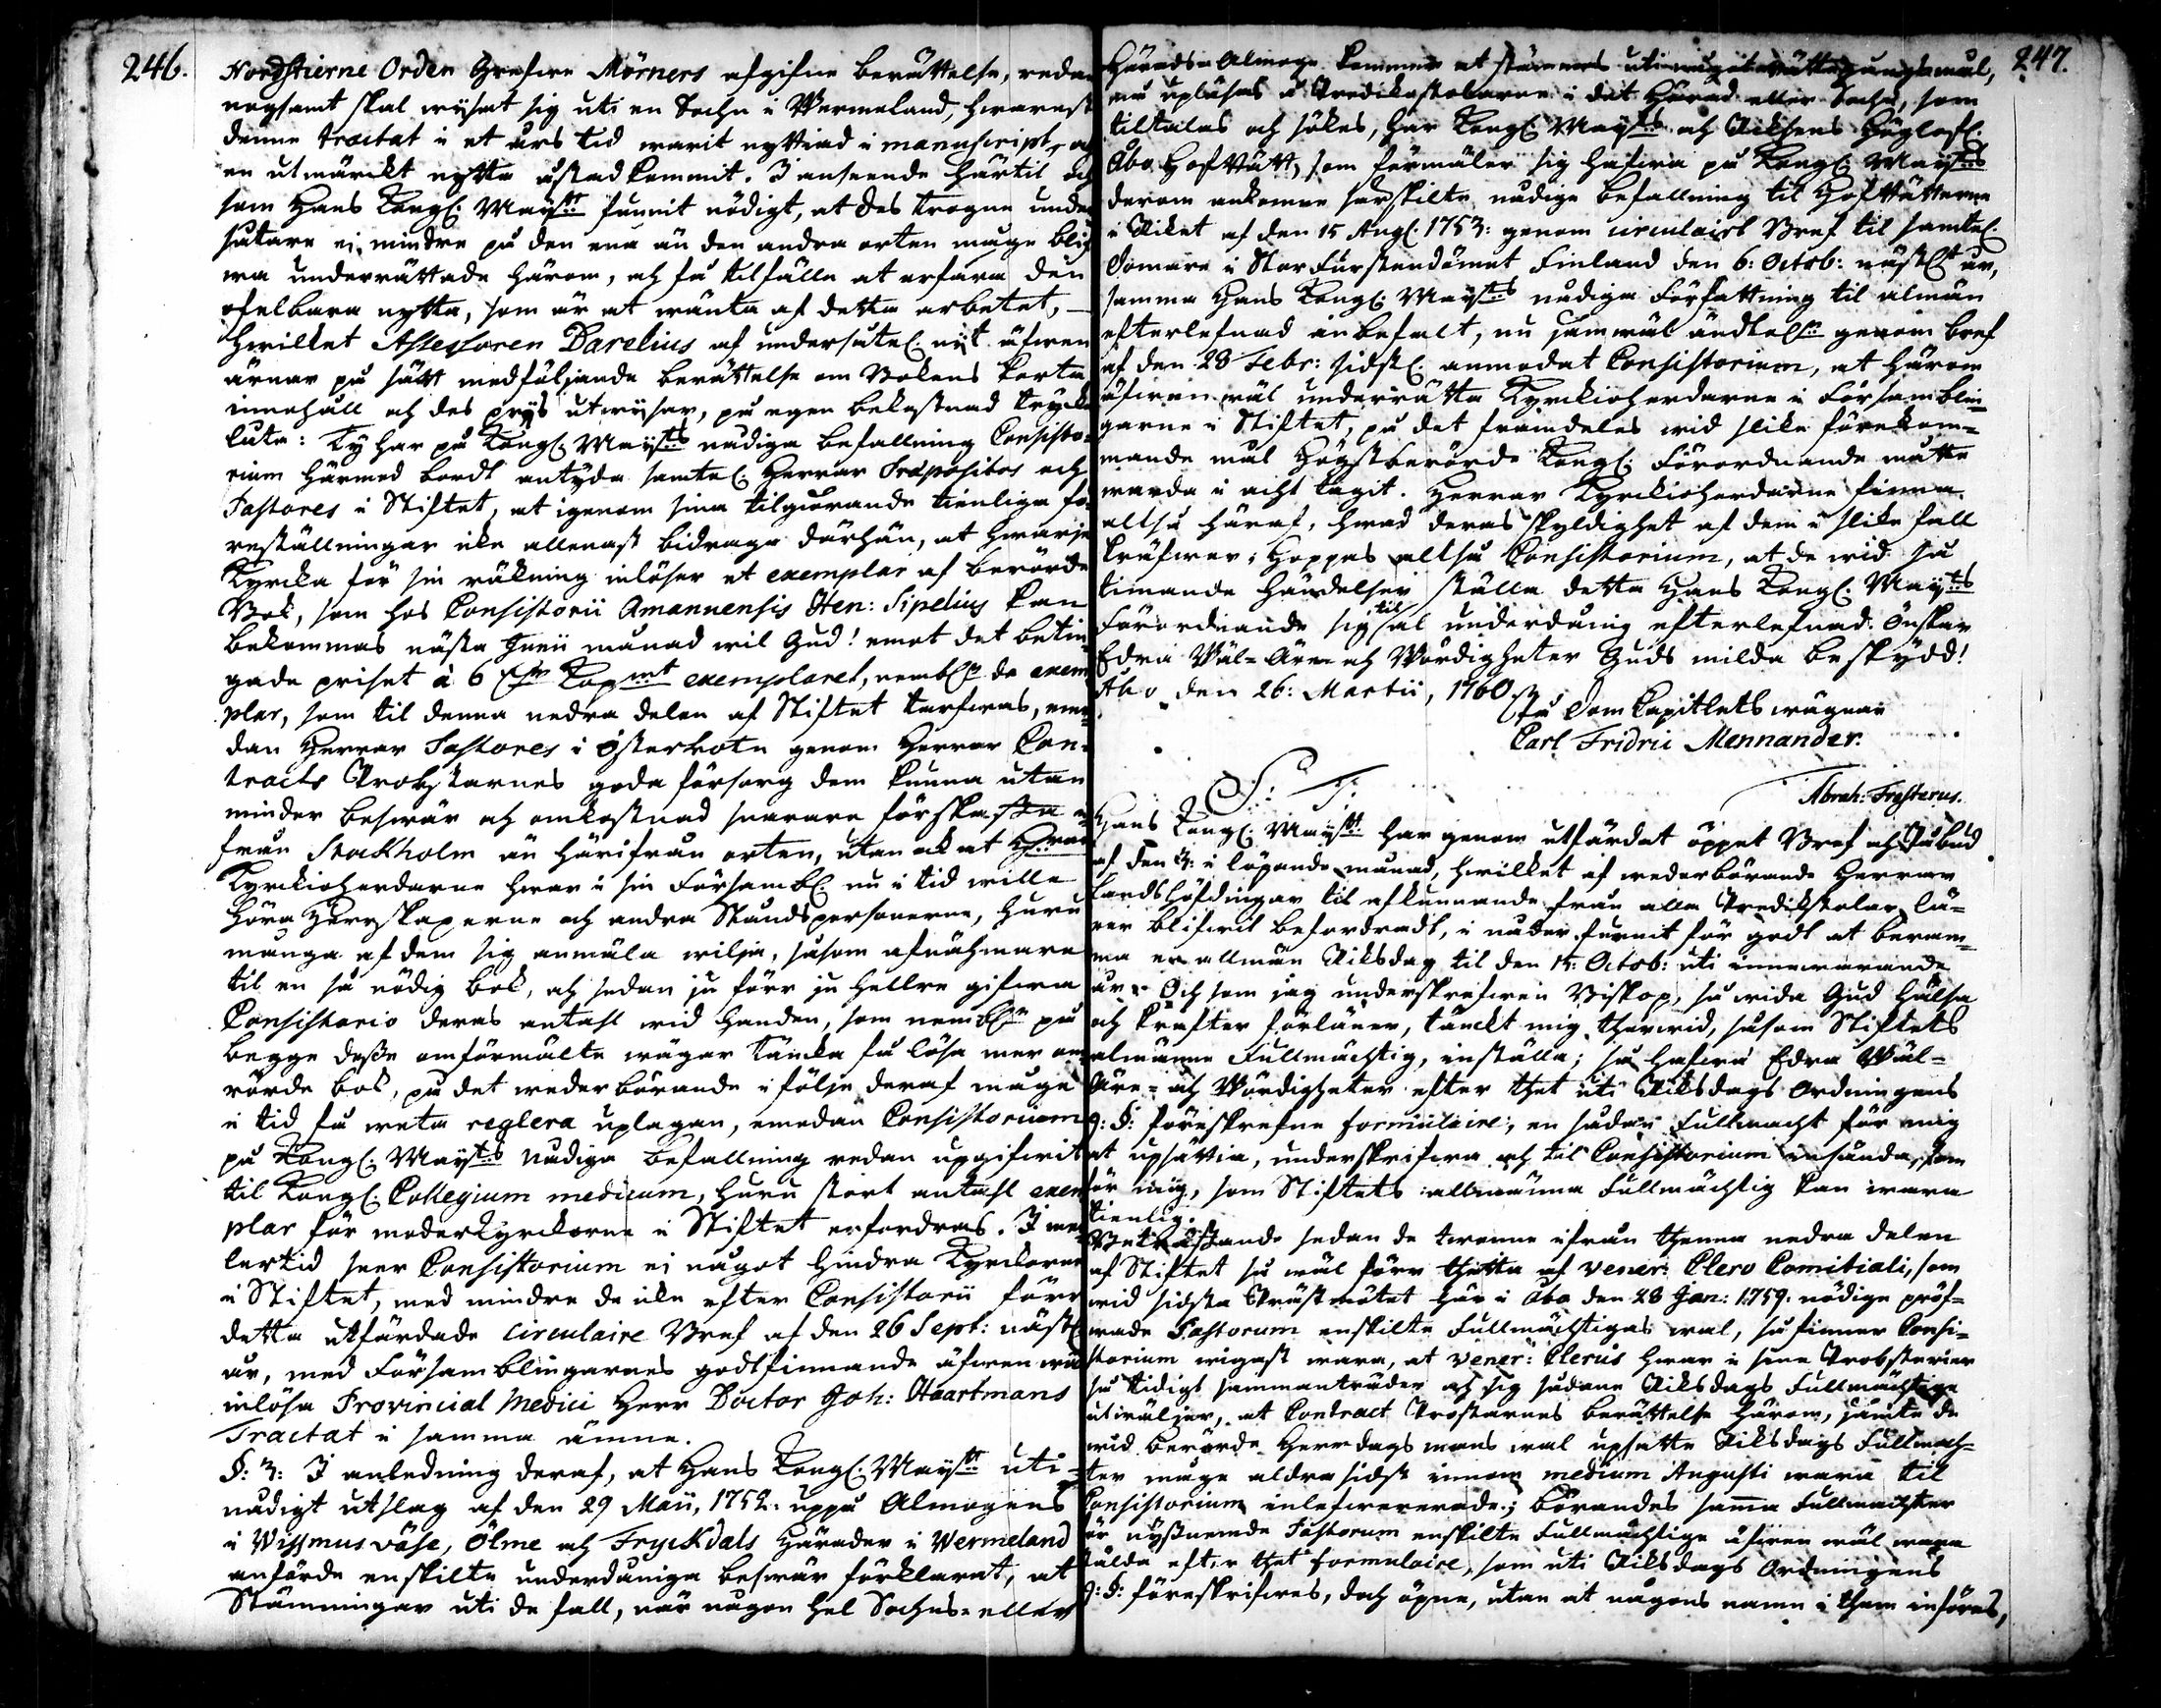 246.
Nordstierne Orden Grefwe Mörners afgifne berättelse, redan
nogsamt skal wijsat sig uti en Sochn i Wermeland, hwarest
denne tractat i et års tid warit nyttiad i manuscript, och
en utmärckt nytta åstadkommit. I anseende härtil och
som Hans Kongl: Maystt funnit nödigt, at des trogne under
såtare ej mindre på den ena än den andra orten måge blif
wa underrättade härom, och få tilfälle at erfara den
ofelbara nytta, som är at wänta af detta arbetet,
hwilket Assessoren Darelius af undersåtel: nijt äfwen
ärnar på sätt medföljande berättelse om Bokens korta
innehåll och des prijs utwijsar, på egen bekostnad trycka
låta: Ty har på Kongl: Maysts nådiga befallning Consisto-
rium härmed bordt antyda samtel: Herrar Præpositos och
Pastores i Stiftet, at igenom sina tilgiörande tienliga fö-
reställningar icke allenast bidraga därhän, at hwarje
Kyrcka för sin räkning inlöser et exemplar af berörde
Bok, som hos Consistorii Amanuensis Hen: Sipelius kan
bekommas nästa Junii månad wil Gud! emot det betin-
gade priset à 6 Kopmt exemplaret, nembl: de exem-
plar, som til denna nedra delen af Stiftet tarfwas, eme-
dan Herrar Pastores i Österbotn genom Herrar Con-
tracts Probstarnes goda försorg dem kunna utan
minder beswär och omkostnad snarare förskaffa
från Stockholm än härifrån orten, utan ock at Herrar
Kyrckioherdarne hwar i sin Försambl: nu i tid wille
höra Herrskaperne och andra Ståndspersonerne, huru
många af dem sig anmäla wilja, såsom afnähmare
til en så nödig bok, och sedan ju förr ju hellre gifwa
Consistorio deras antahl wid handen, som nembl: på
begge desse omförmälte wägar täncka få lösa mer om-
rörde bok, på det wederbörande i följe deraf måge
i tid få weta reglera uplagan, emedan Consistorium
på Kongl: Maysts nådiga befallning redan upgifwit
til Kongl: Collegium medicum, huru stort antahl exem
plar för moderkyrckorne i Stiftet erfordras. I med
lertid seer Consistorium ej något hindra Kyrckorne
i Stiftet, med mindre de icke efter Consistorii förr
detta utfärdade circulaire Bref af den 26 Sept: nästl:
år, med Församblingarnes godtfinnande äfwen wäl
inlösa Provincial Medici Herr Doctor Joh: Haartmans
Tractat i samma ämne.
§: 3: I anledning deraf, at Hans Kongl: Maystt uti
nådigt utslag af den 29 Maii, 1752. uppå Almogens
i Wissnums väse, Ölme och Fryckdals Härader i Wermeland
anförde enskilte underdåniga beswär förklarat, at
Stämningar uti de fall, när någon hel Sochns- eller
247.
Härads-Almoge kommer at stämmas uti något rättegångs mål,
nu upläsas å Predikostolarne i det Härad eller Sochn, som
tiltalas och sökes, har Kongl: Maysts och Riksens Höglofl:
Åbo Hof Rätt, som förmäler sig hafwa på Kongl: Maysts
derom ankomne särskilte nådige befallning til HofRätterne
i Riket af den 15 Augl: 1753: genom circulairt Bref til samtel:
Domare i StorFurstendömet Finland den 6: Octob: nästl: år,
samma Hans Kongl: Maysts nådiga Författning til almän
efterlefnad anbefalt, nu jämwäl ändtel: genom bref
af den 28 Febr: sidstl: anmodat Consistorium, at härom
äfwen wäl underrätta Kyrckioherdarne i Församblin-
garne i Stiftet, på det framdeles wid slike förekom-
mande mål Högstberörde Kongl: Förordnande måtte
warda i acht tagit. Herrar Kyrckioherdarne finna
altså häraf, hwad deras skyldighet af dem i slike fall
kräfwer; hoppas altså Consistorium, at de wid så
timande händelser ställa detta Hans Kongl: Maysts
Förordnande sig til al underdånig efterlefnad. Önskar
Edra Wäl-Äre och Wördigheter Guds milda beskydd!
Åbo den 26: Martii, 1760.
På Dom Capitlets wägnar
Carl Fridric Mennander.
Abrah: Frosterus.
S: T:
Hans Kongl: Maystt har genom utfärdat öppet Bref och Påbud
af den 3: i löpande månad, hwilket af wederbörande Herrar
Landshöfdingar til afkunnande från alla Predikstolar lä-
rer blifwit befordradt, i nåder funnit för godt at beram-
ma en allmän Riksdag til den 15: Octob: uti innewarande
år. Och som jag underskrefwen Biskop, så wida Gud hälsa
och krafter förlänar, tänckt mig therwid, såsom Stiftets
almänne Fullmächtig, inställa; så hafwa Edra Wäl-
Äre- och Wördigheter efter thet uti Riksdags Ordningens
9: §: föreskrefne formulaire, en sådan Fullmacht för mig
at upsättia, underskrifwa och til Consistorium insända, som
för mig, som Stiftets allmänna Fullmächtig kan wara
tienlig.
Beträffande sedan de twenne ifrån thenna nedra delen
af Stiftet så wäl förr thetta af Vener: Clero Comitiali, som
wid sidsta Prästmötet här i Åbo den 28 Jan: 1759. nödige pröf-
wade Pastorum enskilte Fullmächtigas wal, så finner Consi-
storium wigast wara, at Vener: Clerus hwar i sine Probsterier
så tidigt sammanträder och sig sådane Riksdags Fullmächtige
utwäljer, at Contract Prostarnes berättelse härom, jämte de
wid berörde Herredags mans wal upsatte Riksdags Fullmach-
ter måge aldra sidst innom medium Augusti wara til
Consistorium inlefwererade; börandes samma Fullmachter
för nyssnemde Pastorum enskilte Fullmächtige äfwen wäl wara
stälde efter thet formulaire, som uti Riksdags Ordningens
9: §: föreskrifwes, doch öpne, utan at någons namn i them införes,